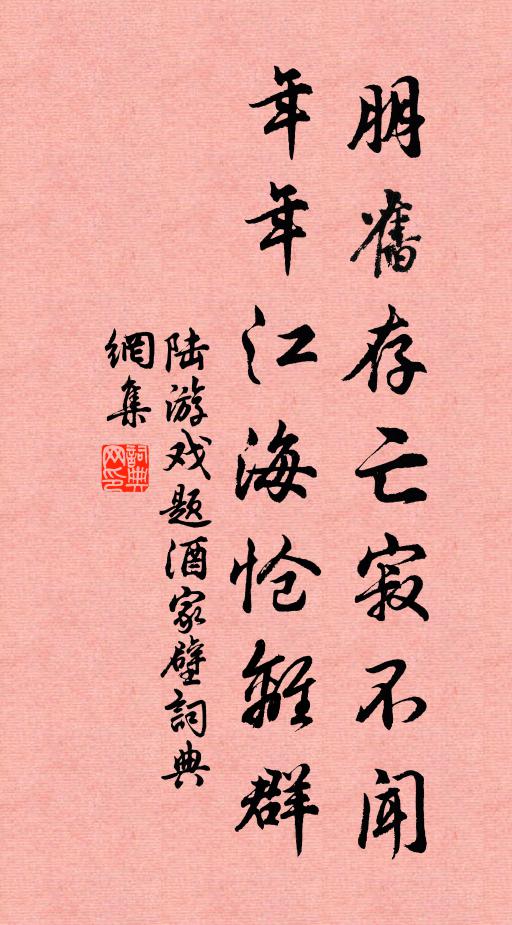 朋舊存亡寂不闻
年年江海怆離群
陆游戏题酒家壁詞典
網集
詞典
网印